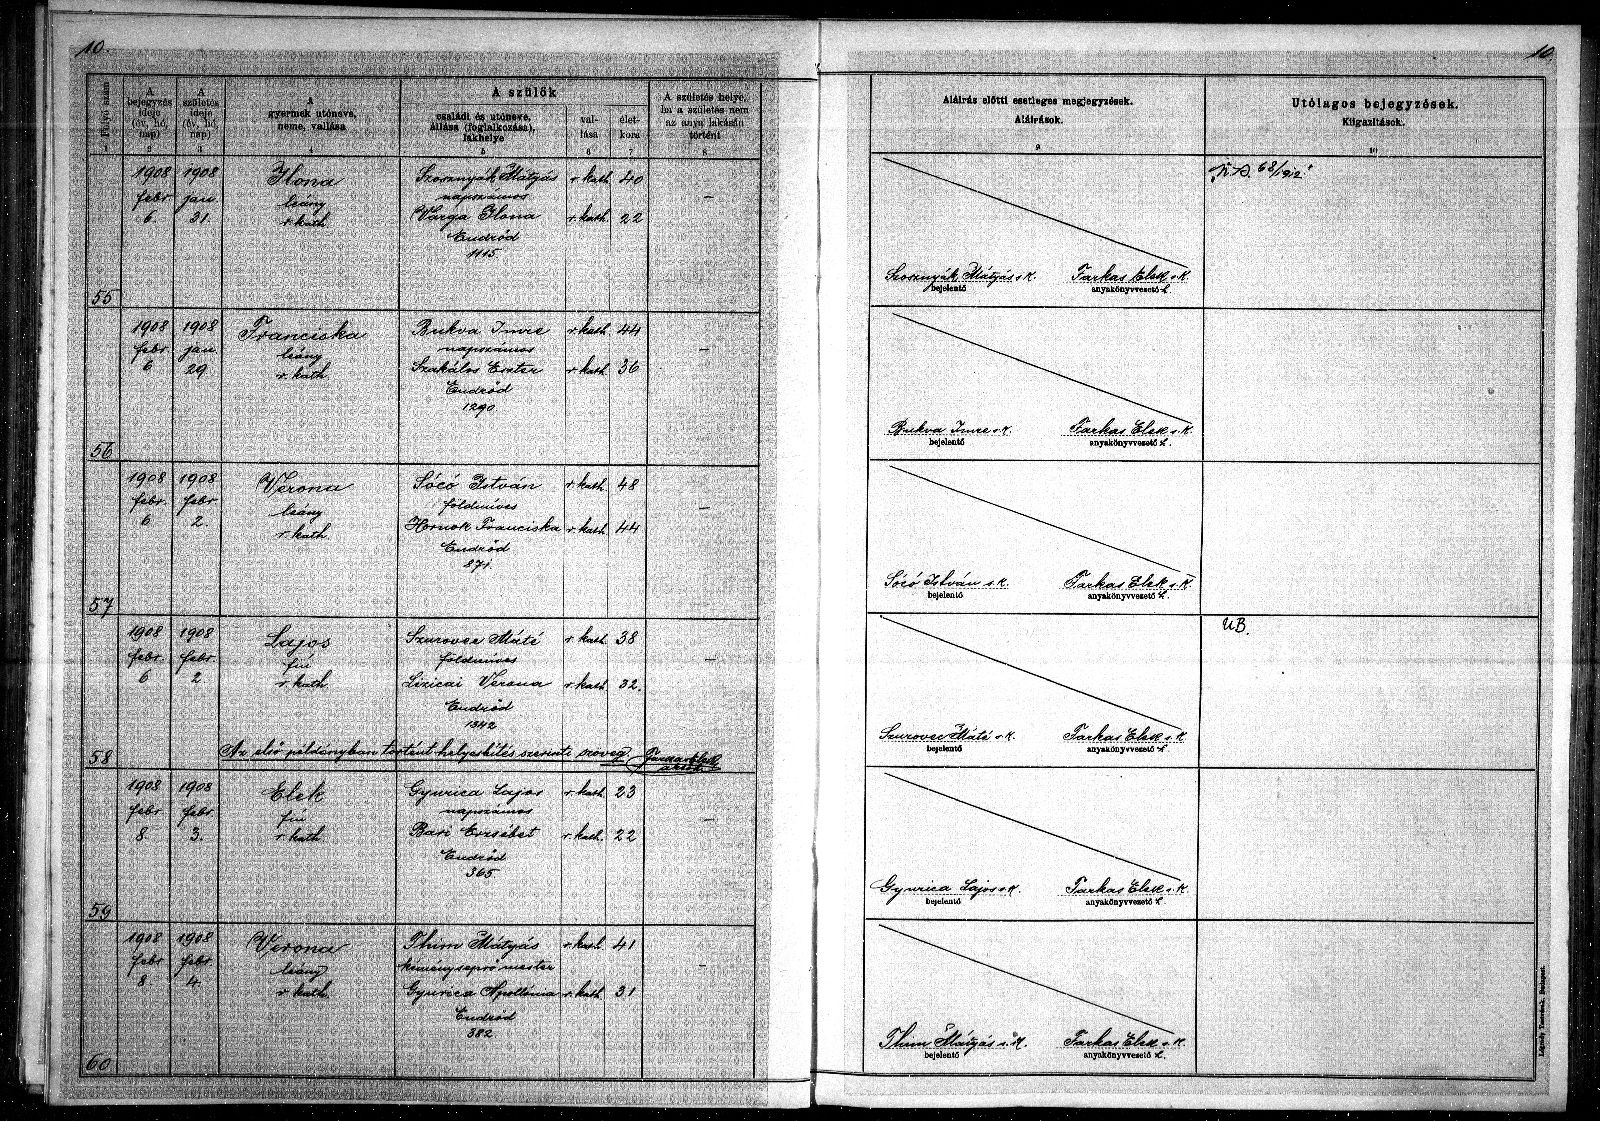 10.
10.
Folyó szám
A bejegyzés ideje (év, hó, nap)
A születés ideje (év, hó, nap)
A gyermek utóneve, neme, vallása
A szülők
családi és utóneve, állása (foglalkozása), lakhelye
vallása
életkora
A születés helye, ha a születés nem az anya lakásán történt
Aláírás előtti esetleges megjegyzések.
Aláírások.
Utólagos bejegyzések.
Kiigazítások.
1 2 3 4 5 6 7 8 9 10
55
1908 febr 6
1908 jan. 31.
Ilona
leány
r. kath
Szosznyák Mátyás r. kath 40
napszámos
Varga Ilona r. kath. 22
Endrőd
1115.
—
Szosznyák Mátyás s. k.
bejelentő
Farkas Elek s. k.
anyakönyvvezető h.
68/912
56
1908 febr 6
1908 jan. 29
Franciska
leány
r. kath
Bukva Imre r. kath 44
napszámos
Szakálos Eszter r. kath 36
Endrőd
1290
—
Bukva Imre s. k.
bejelentő
Farkas Elek s. k.
anyakönyvvezető h.
57
1908 febr. 6
1908 febr 2
Verona
leány
r. kath.
Sócó István r. kath. 48
földmíves
Hornok Franciska r. kath. 44
Endrőd
871.
—
Sócó István s. k.
bejelentő
Farkas Elek s. k.
anyakönyvvezető h.
58
1908 febr 6
1908 febr 2
Lajos
fiú
r. kath.
Szurovec Máté r. kath. 38
földmíves
Lizicai Verona r. kath. 32.
Endrőd
1342
—
Az első példányban történt helyesbítés szerinti szöveg
Szurovec Máté s. k.
bejelentő
Farkas Elek s. k.
anyakönyvvezető h.
UB.
59
1908 febr 8.
1908 febr. 3.
Elek
fiú
r. kath.
Gyurica Lajos r. kath. 23
napszámos
Bari Erzsébet r. kath. 22
Endrőd
365
—
Gyurica Lajos s. k.
bejelentő
Farkas Elek s. k.
anyakönyvvezető h.
60
1908 febr 8
1908 febr. 4.
Verona
leány
r. kath.
Thum Mátyás r. kath. 41
kéményseprő mester
Gyurica Apollónia r. kath. 31
Endrőd
382.
—
Thum Mátyás s. k.
bejelentő
Farkas Elek s. k.
anyakönyvvezető h.